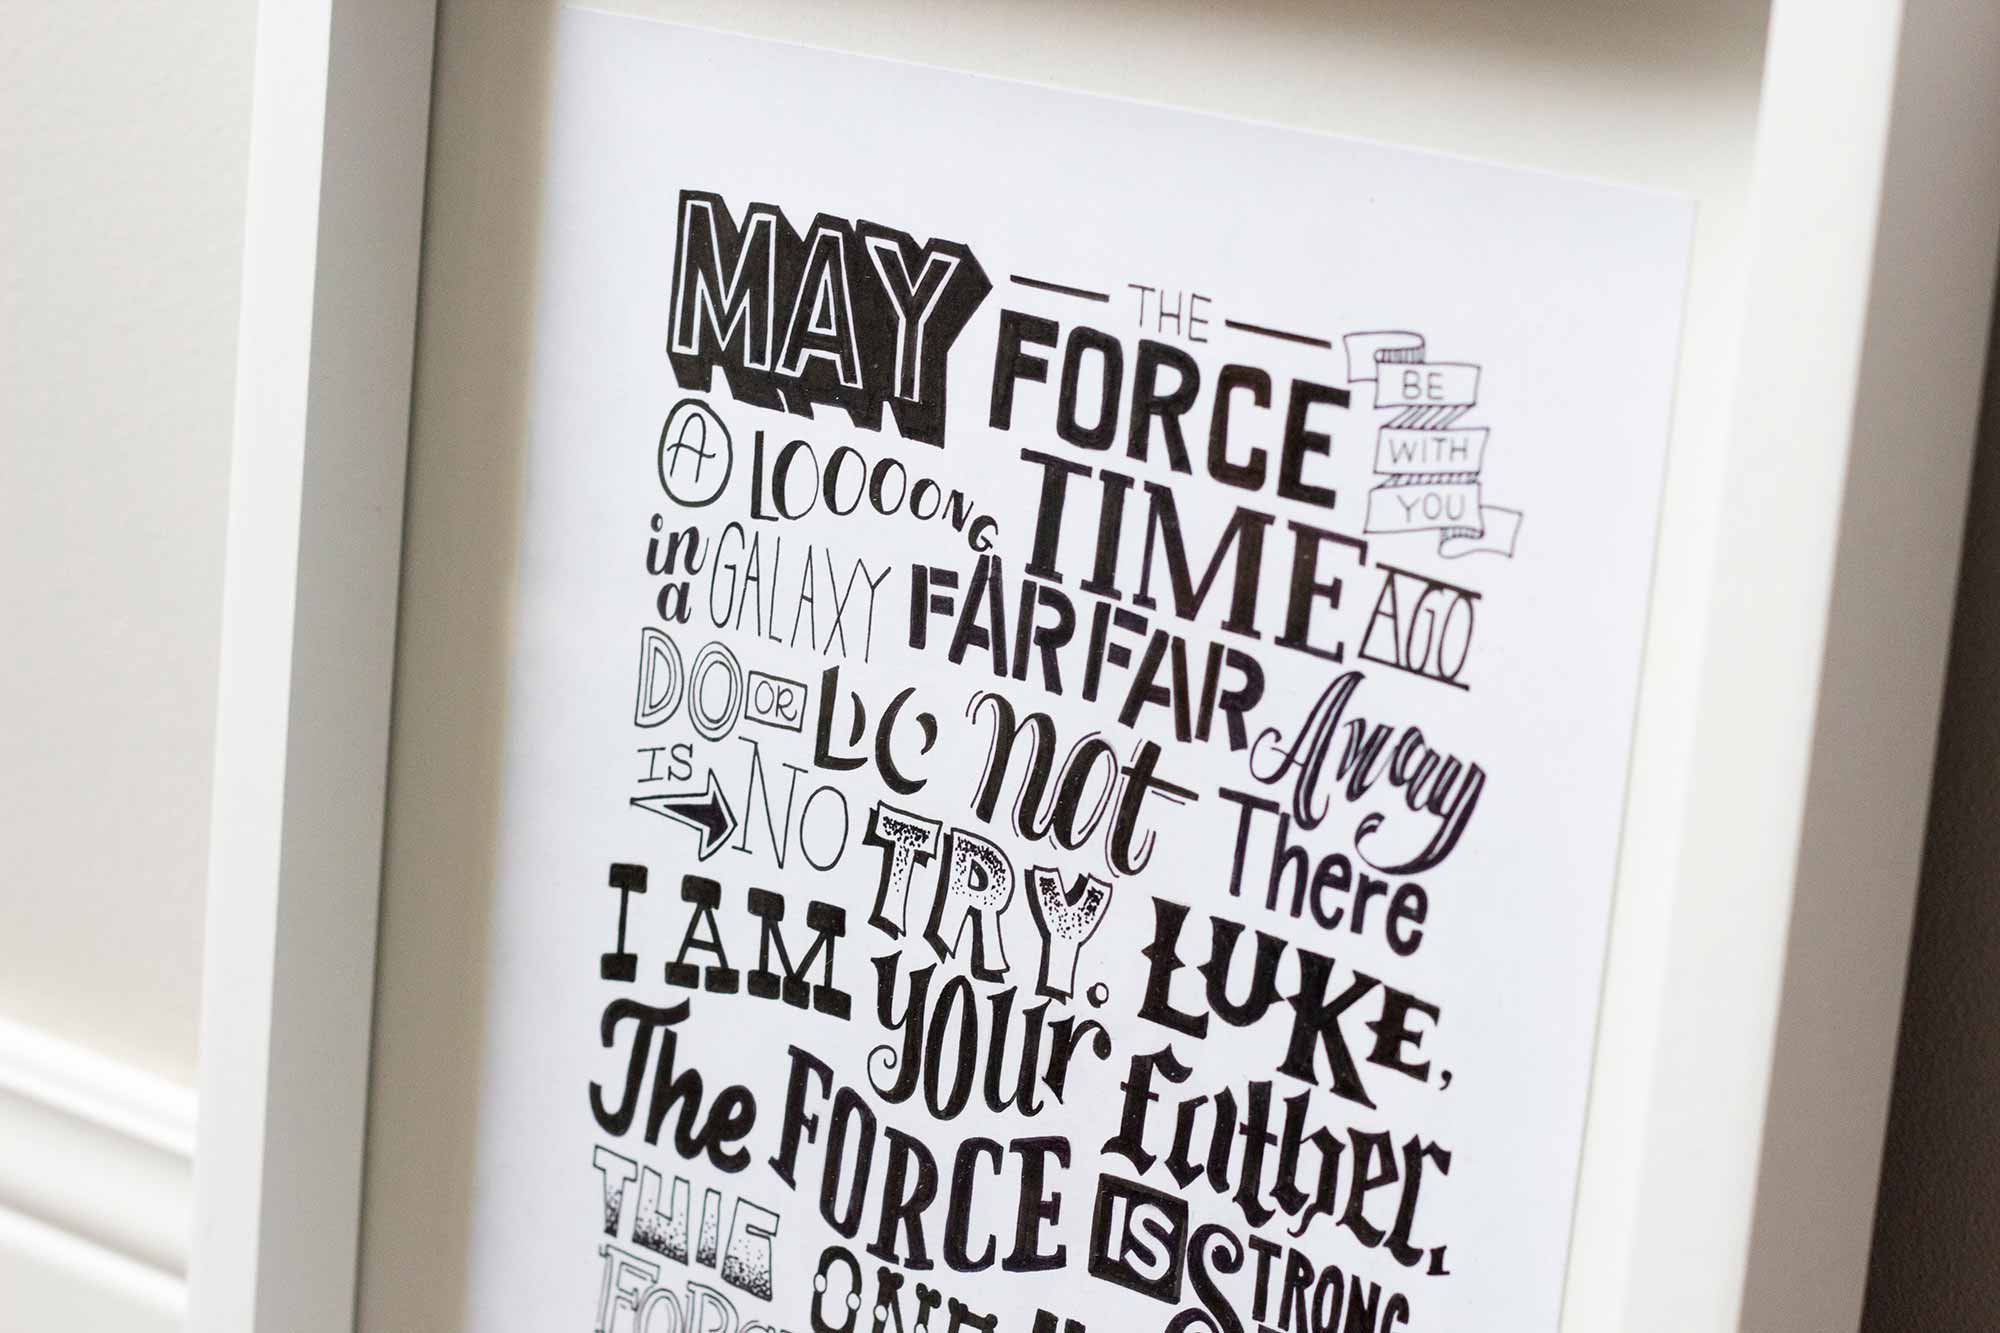 MAY THE FORCE BE WITH YOU
A LOOOONG TIME AGO
in a GALAXY FAR FAR Away
DO OR DO not There
IS NO TRY. LUKE,
I AM your father.
The FORCE IS STRONG
THIS ONE